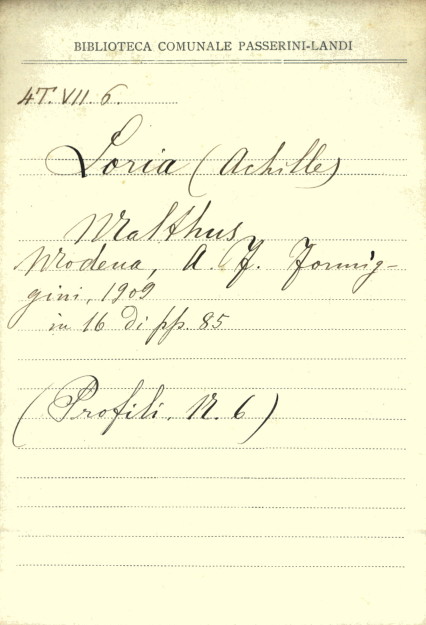 BIBLIOTECA COMUNALE PASSERINI-LANDI
4T. VII. 6.
Loria (Achille)
Malthus
Modena, A. F. Formig-
gini, 1909
in 16 di pp. 85
(Profili. N. 6)